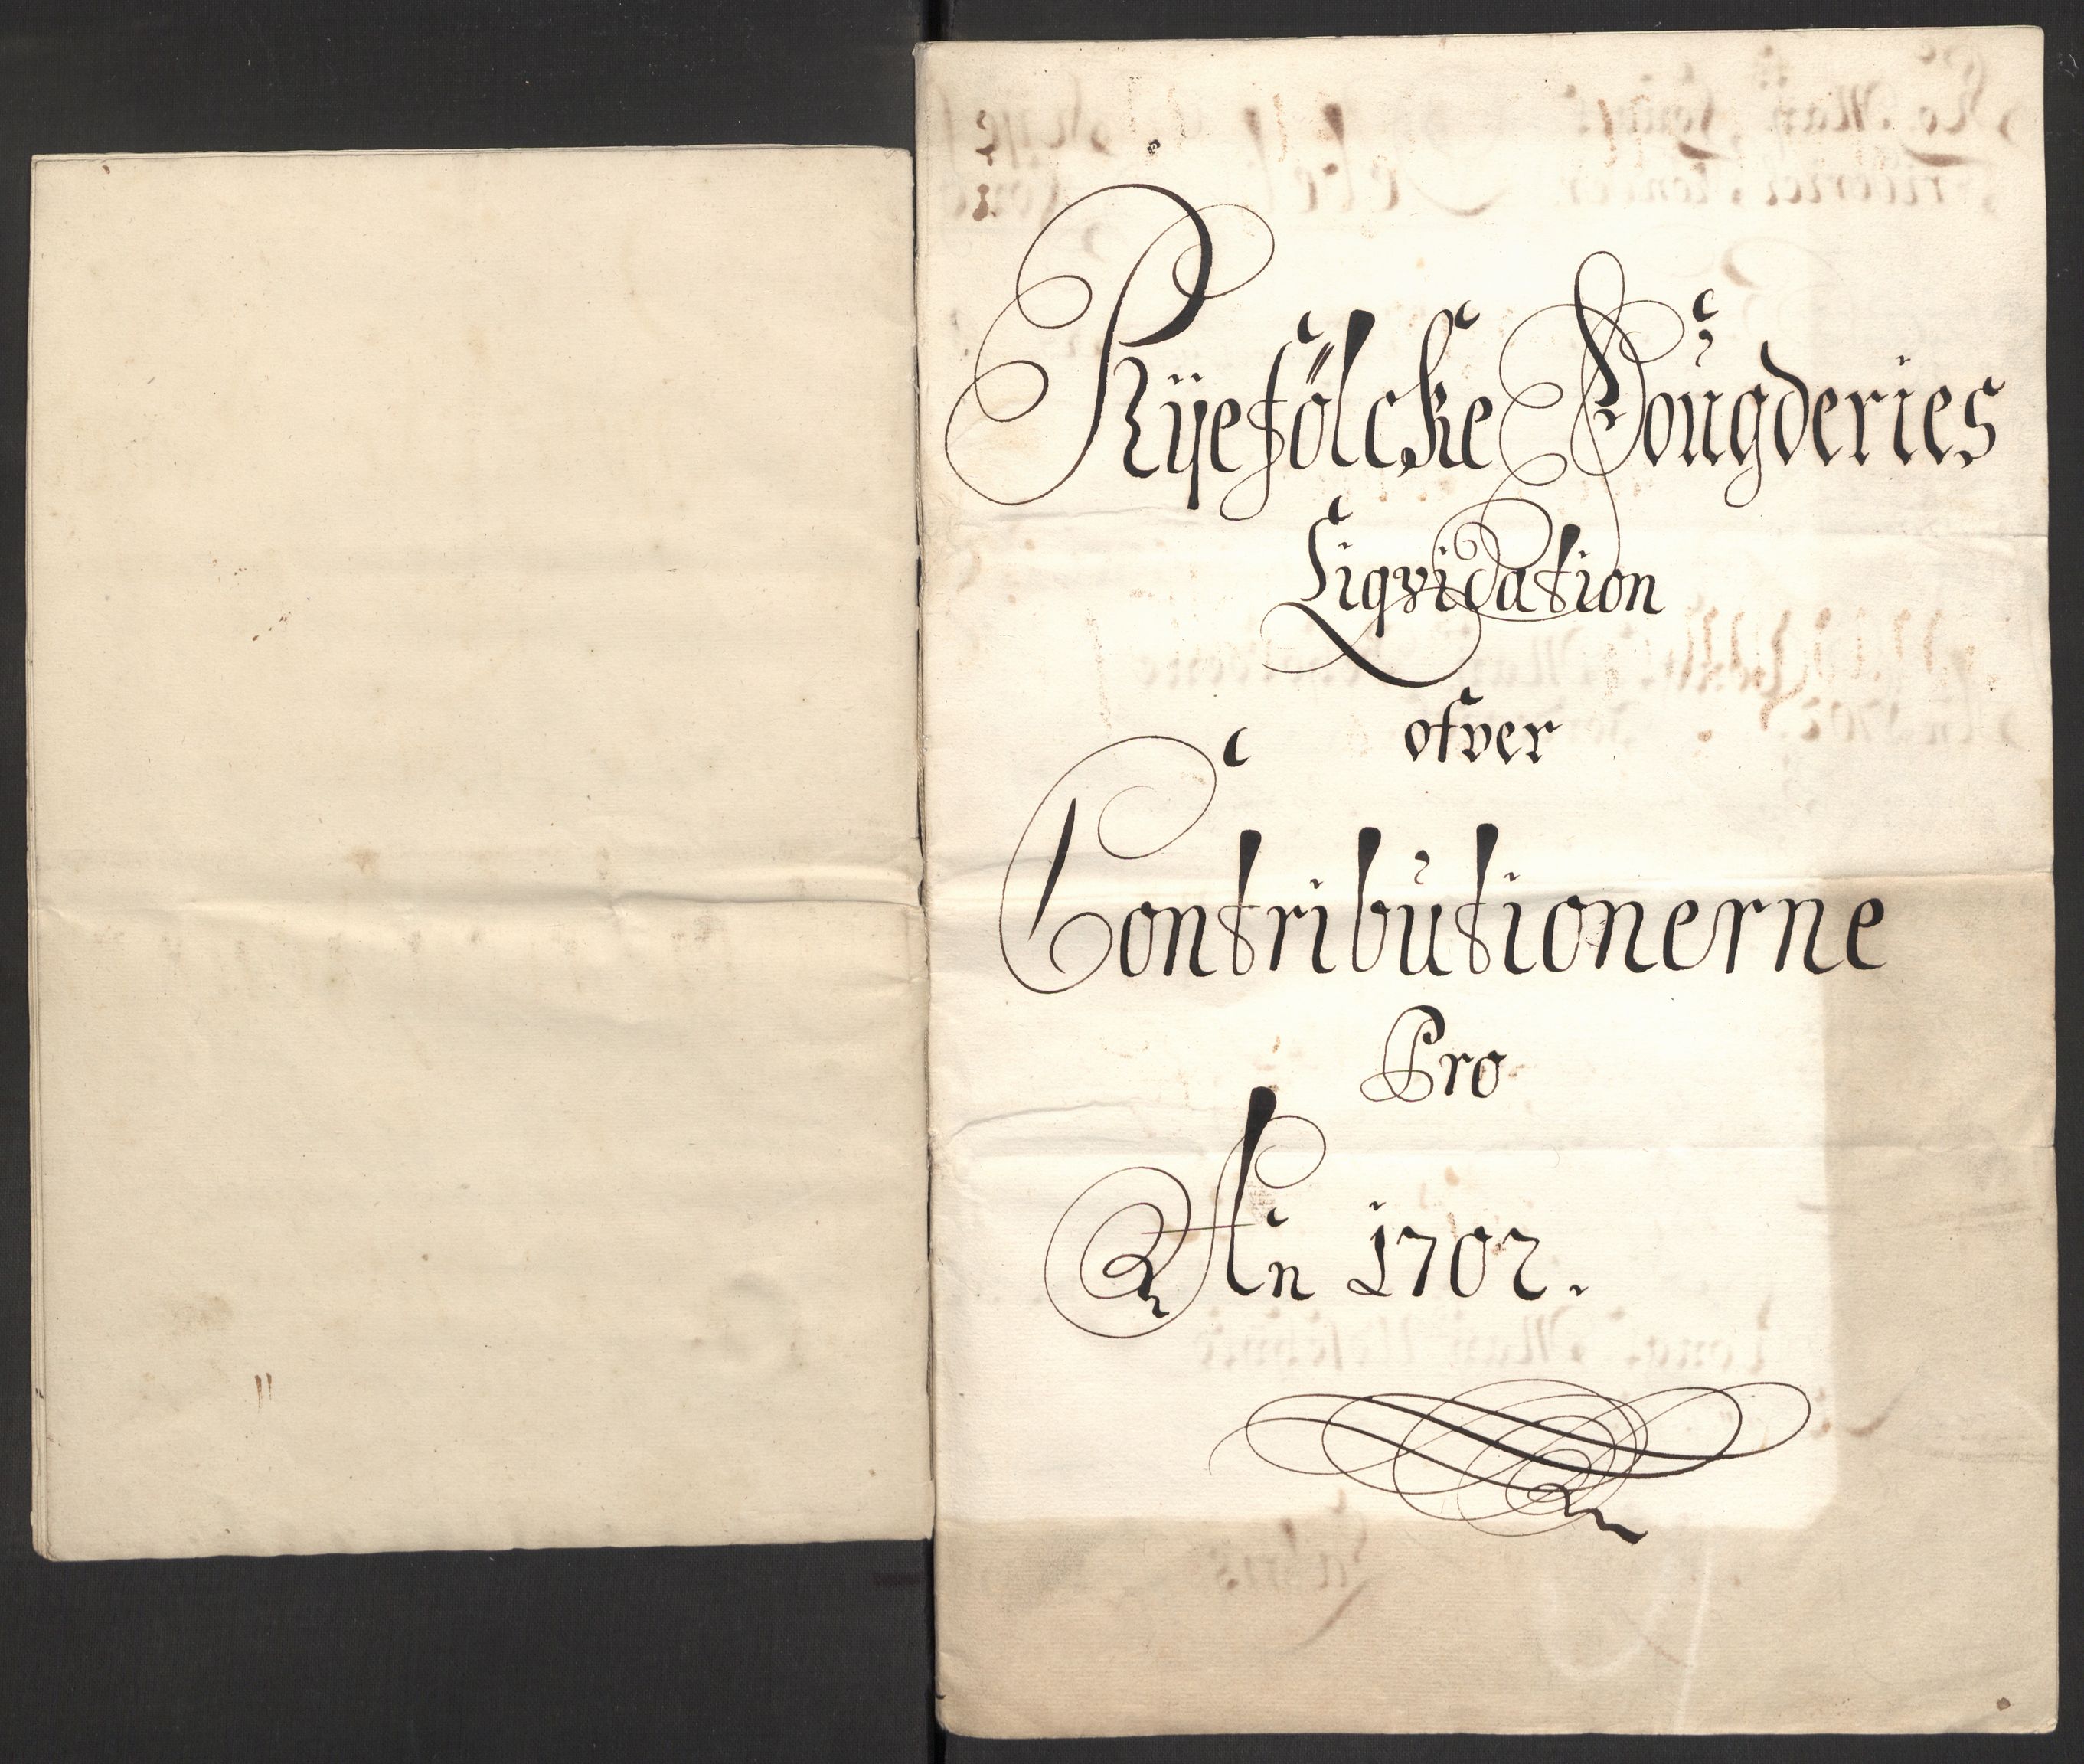 Rÿefölcke Fougderies
Liqvidation
ofver
Contributionerne
Pro
An 1702.